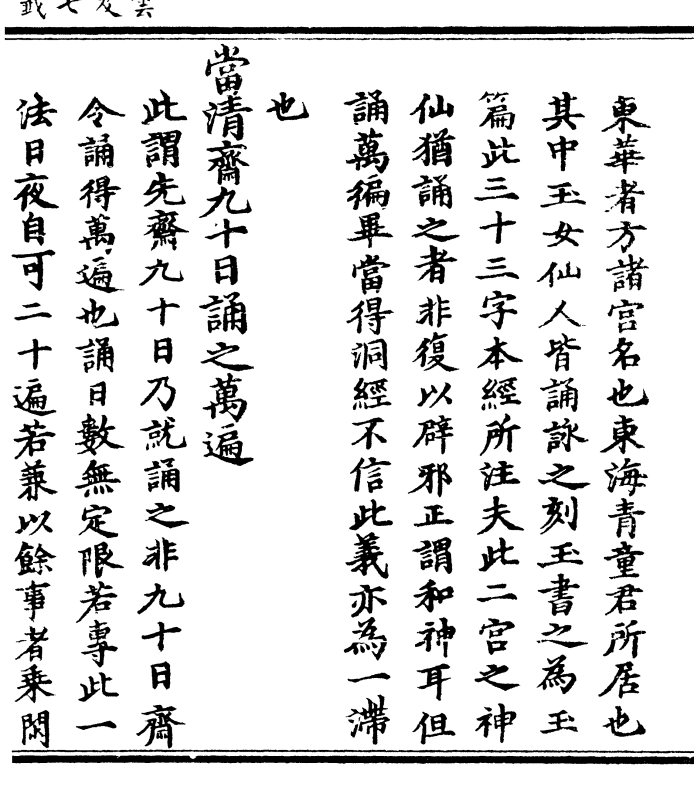 東華者方諸宫名也東海青童君所居也
其中玉女仙人皆誦詠之刻玉書之為玉
篇此三十三字本經所注夫此二宫之神
仙猶誦之者非復以辟邪正謂和神耳但
誦萬徧畢當得洞經不信此義亦為一滯
也
當清齋九十日誦之萬遍
此謂先齋九十日乃就誦之非九十日齋
令誦得萬遍也誦日數無定限若專此一
法日夜自可二十遍若兼以餘事者乘閑